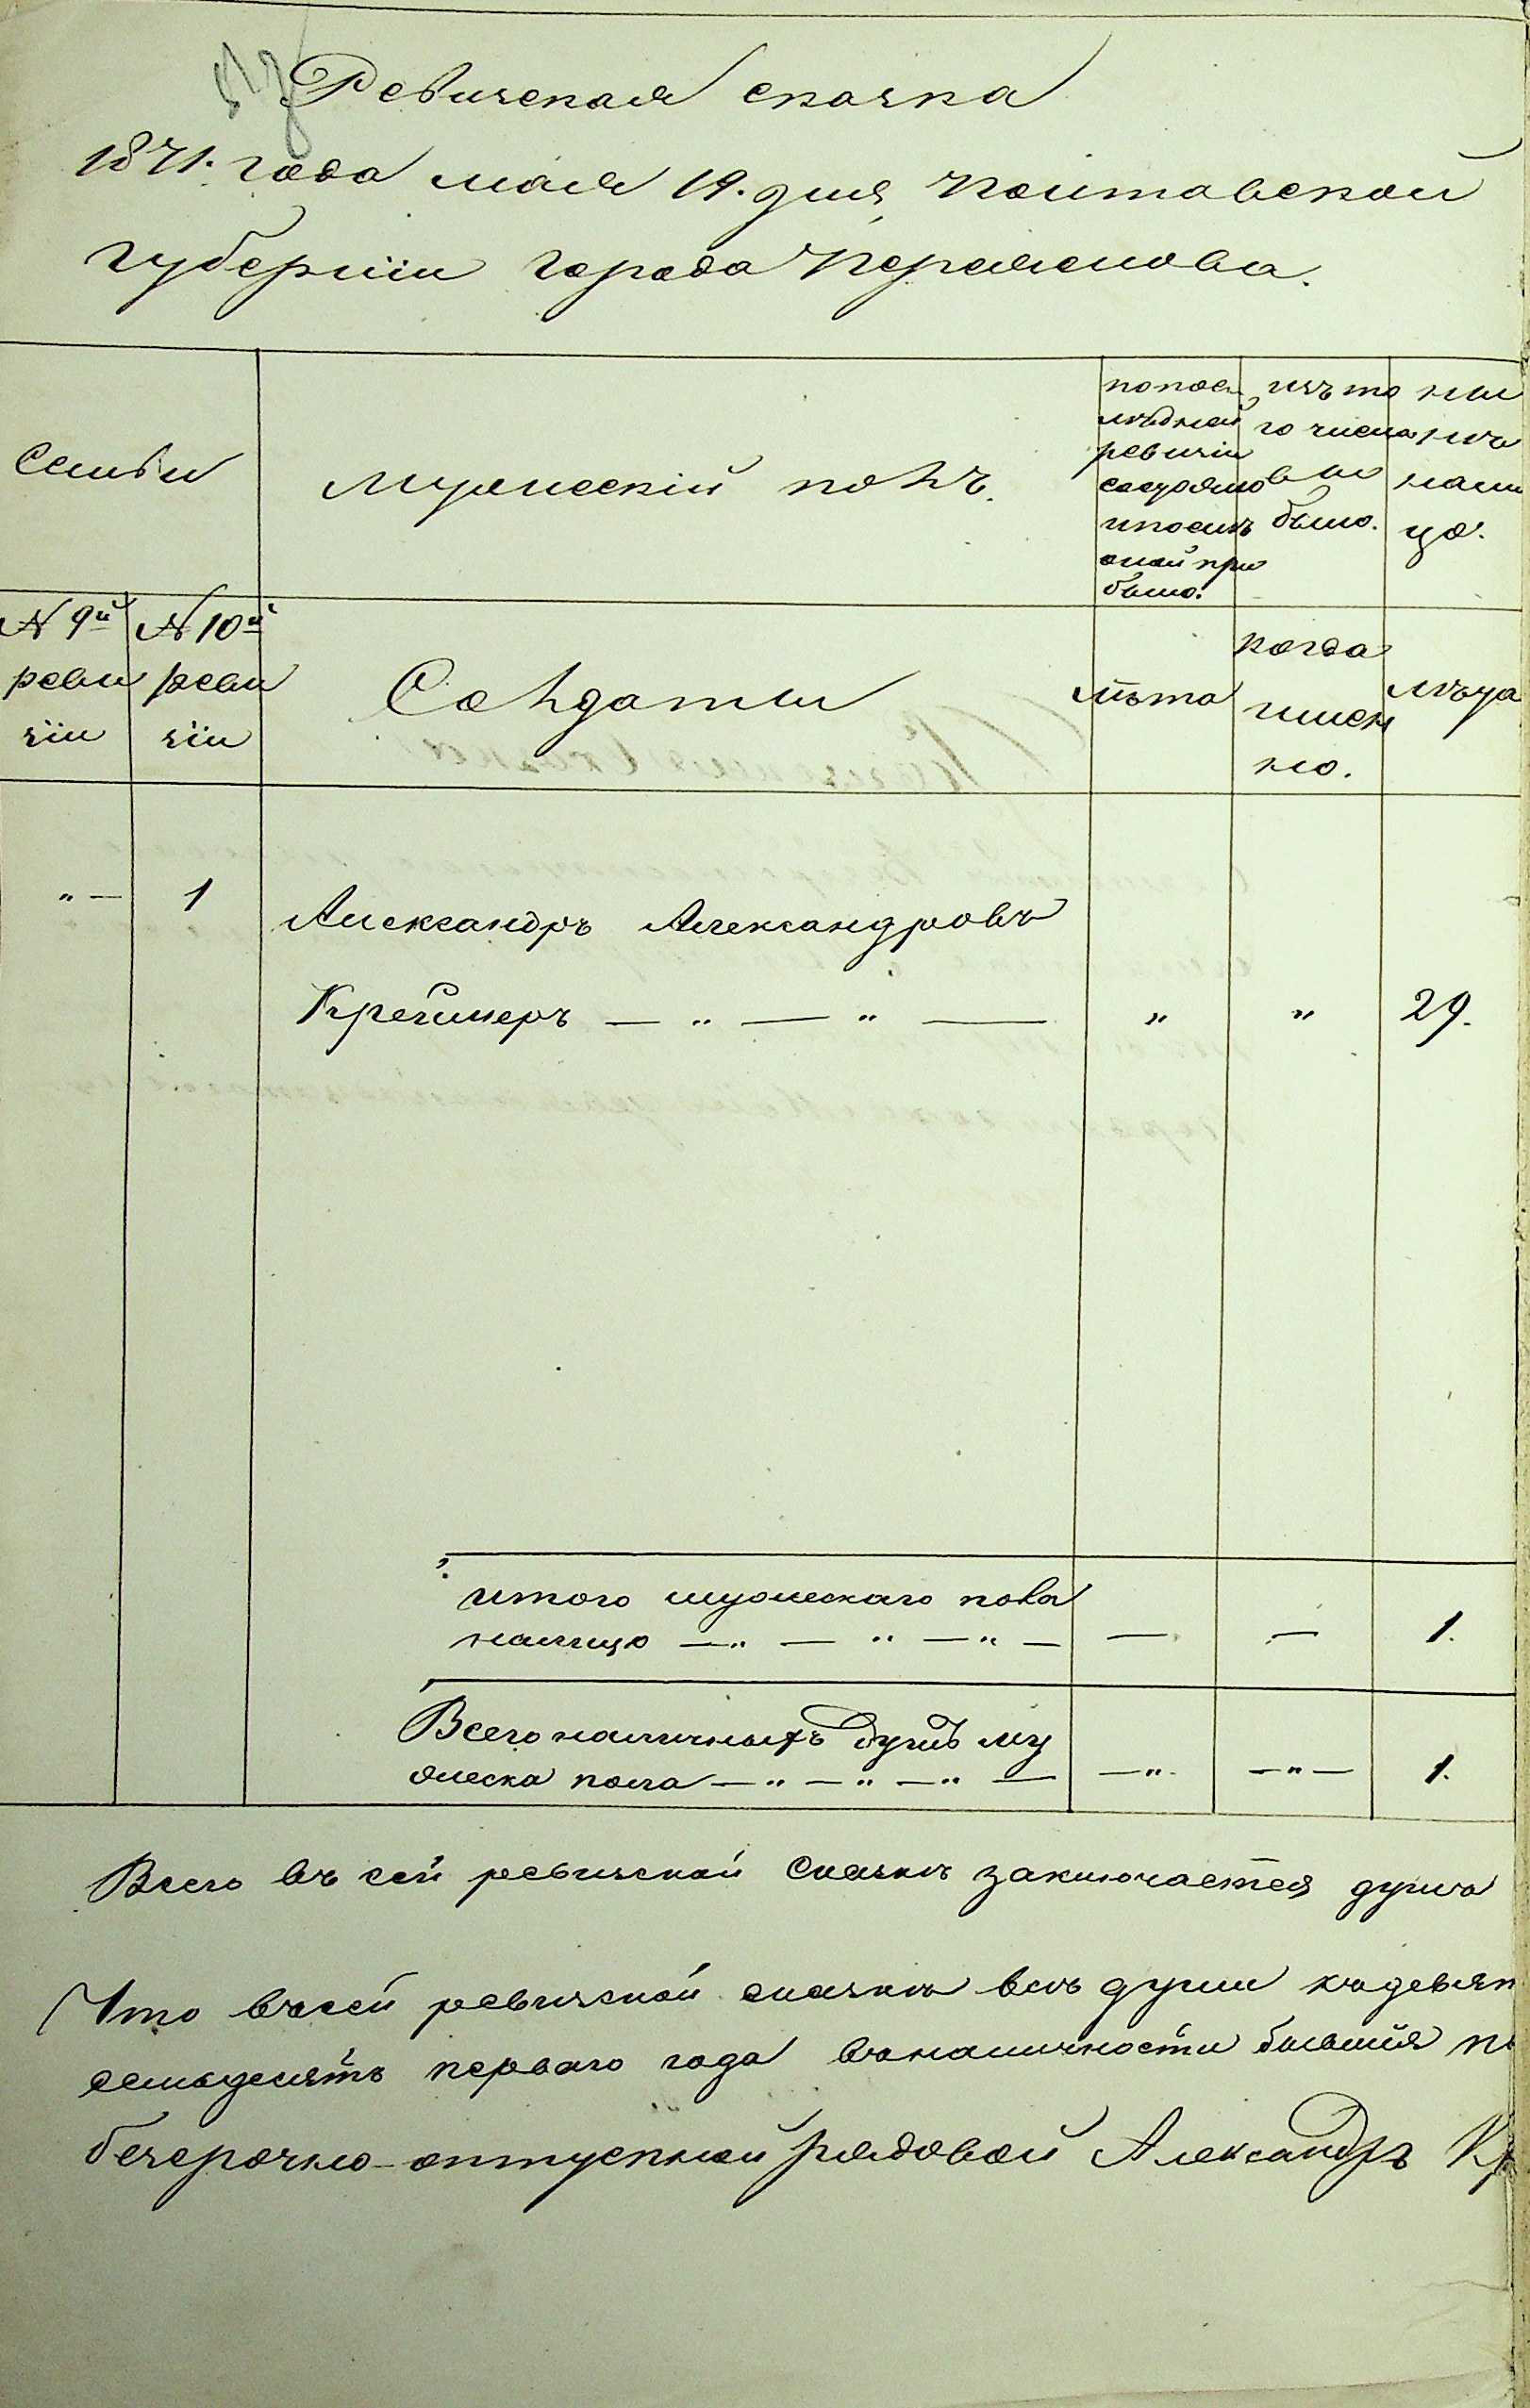 Ревизская сказка
1871. года мая 19. дня, Полтавской
губернiи города Переяслова.
Семьи
Мужескiй полъ.
по посл
ѣдней
ревизiи
состояло
и послѣ
оной при
было.
изъ то
го числа
вы
было.
ны
нѣ
на ли
цо.
N 9й реви зiи
N 10й реви зiи
Солдаты
лѣта
когда
имен
но.
лѣта
" — 1 Александръ Александровъ
Крейшеръ — " — " — " " 29.
итого мужескаго пола
налицо — " — " — " — — — 1.
Всего наличныхъ душъ му
жеска пола — " — " — " — — " — " — 1.
Всего въ сей ревизской сказкѣ заключается душъ
Что въ сей ревизской сказкѣ всѣ души къ девят
семьдесятъ перваго года въ наличности бывшiя
безсрочно-отпускной рядовой Александръ Кр